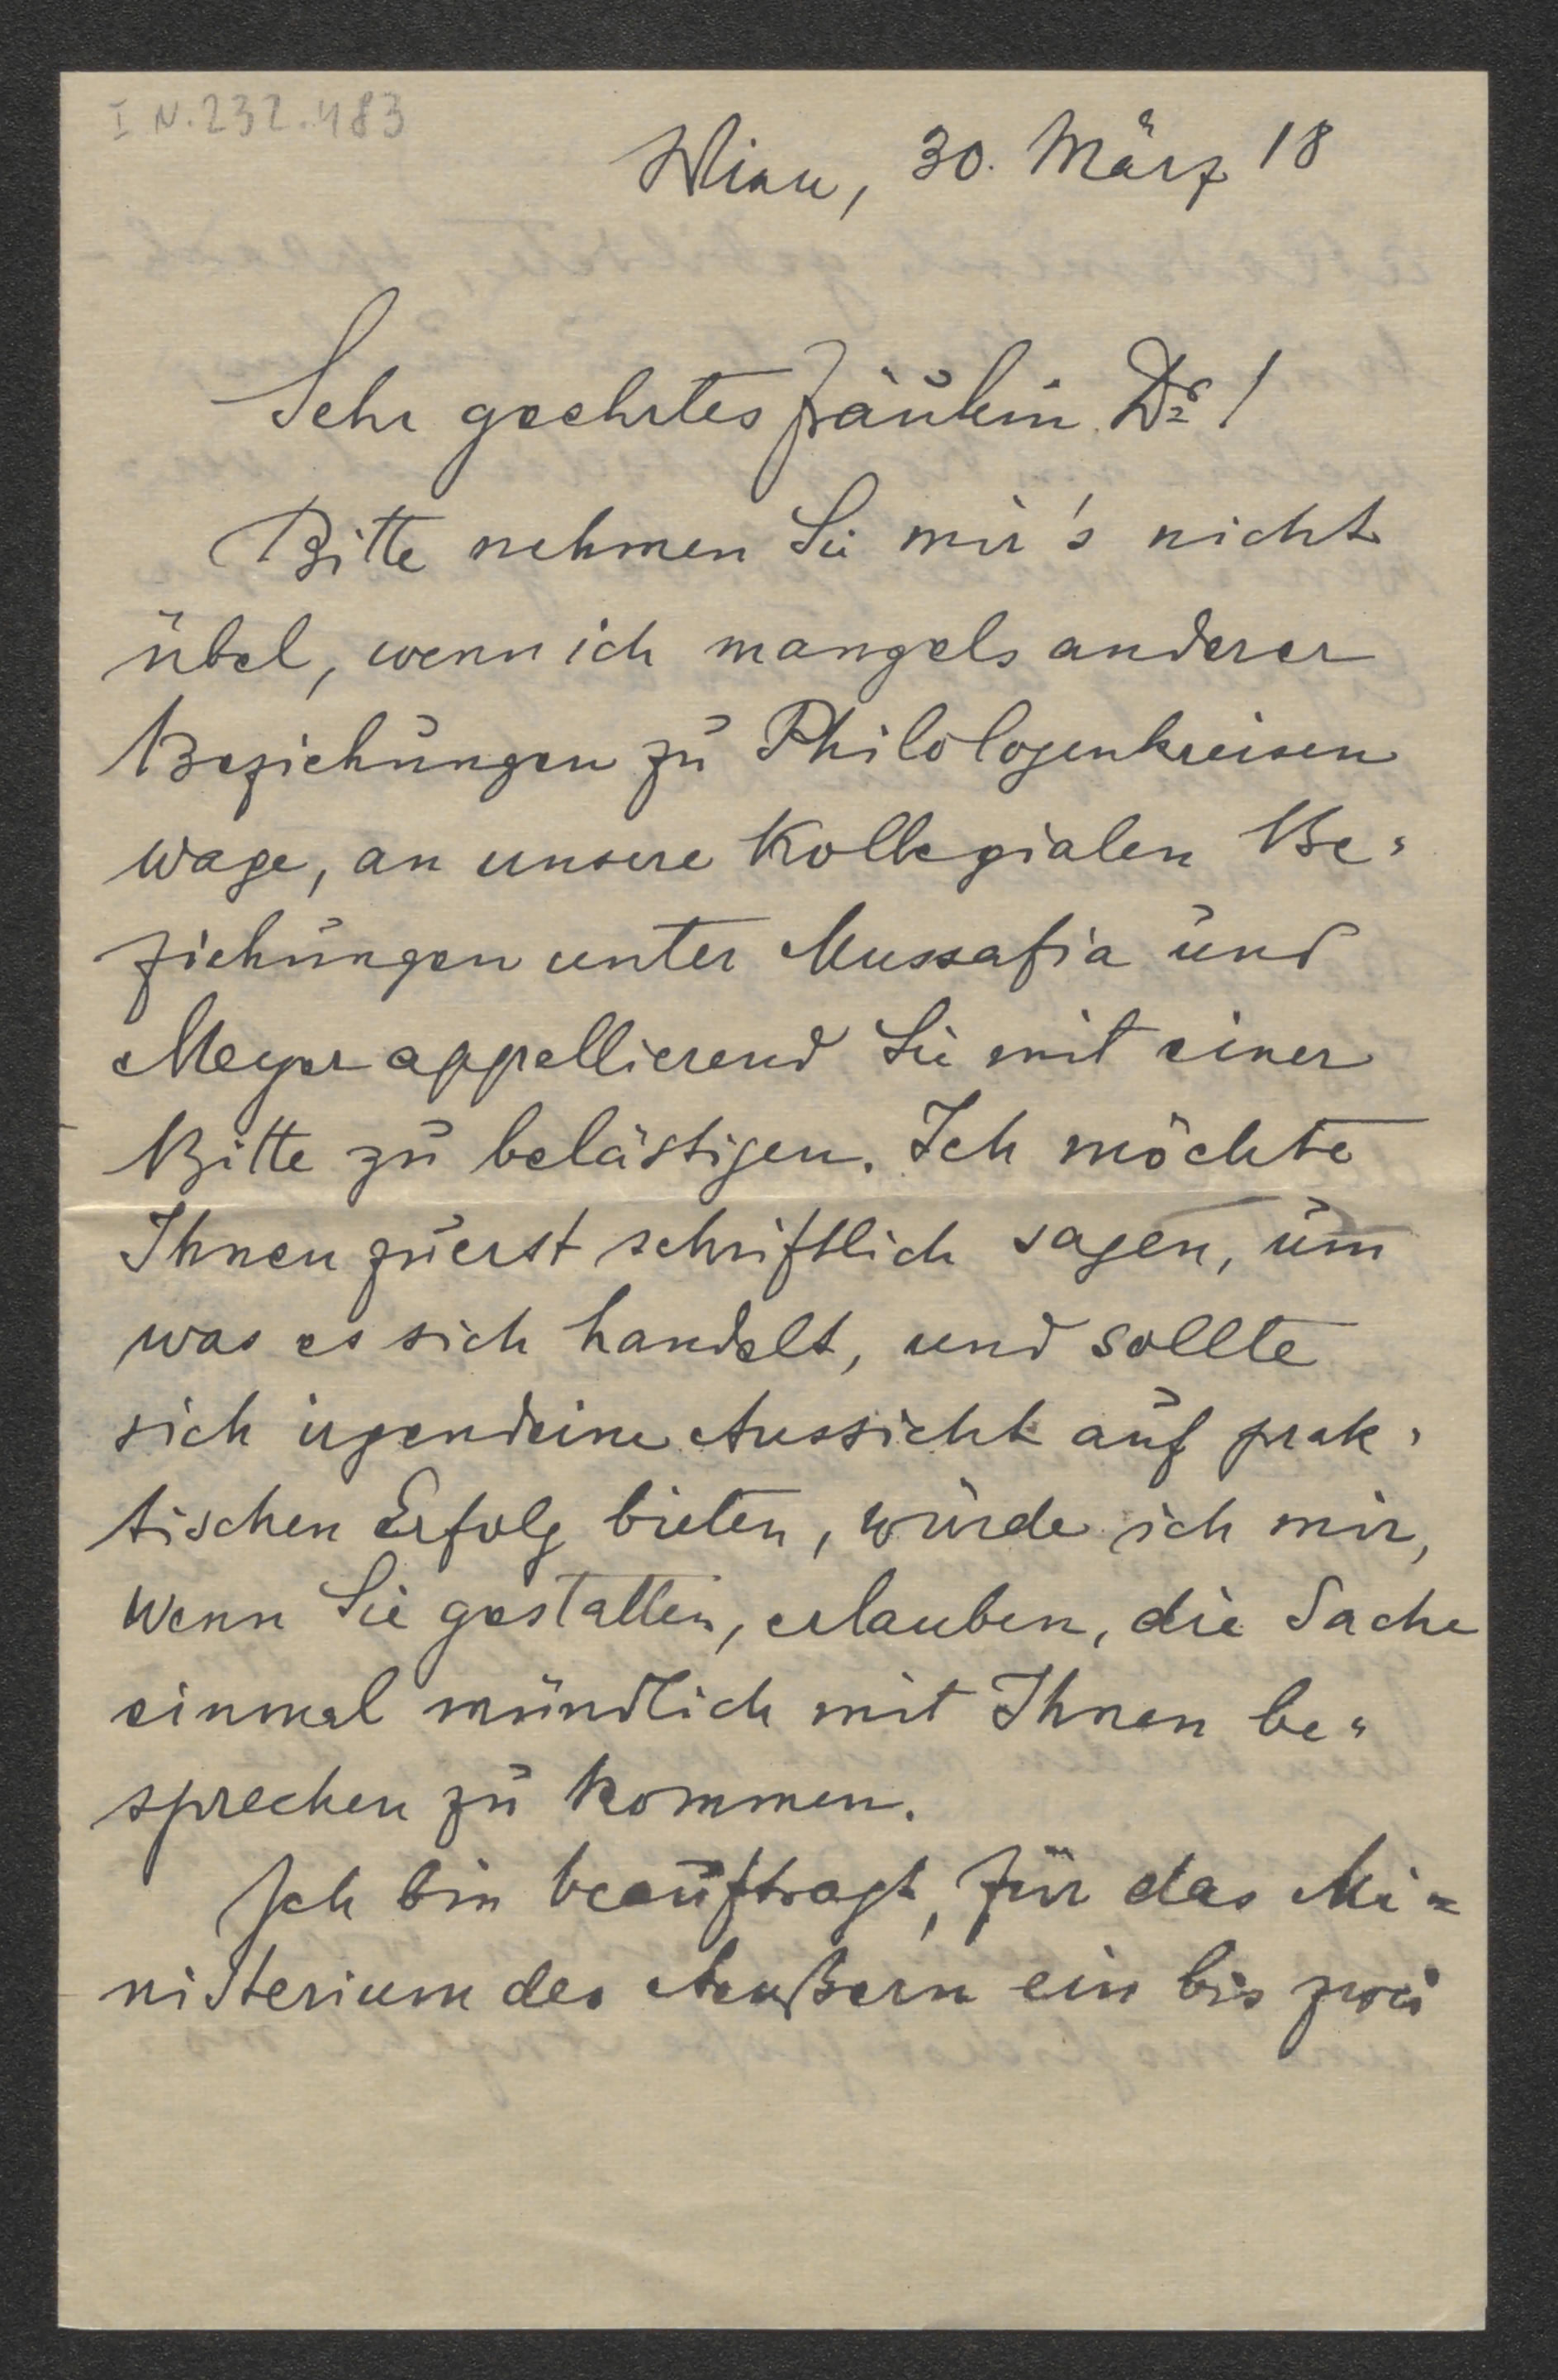 I N. 232.483
Wien, 30. März 18
Sehr geehrtes Fräulein Dr!
Bitte nehmen Sie mir's nicht
übel, wenn ich mangels anderer
Beziehungen zu Philologenkreisen
wage, an unsere kollegialen Be-
ziehungen unter Mussafia und
Meyer appellierend Sie mit einer
Bitte zu belästigen. Ich möchte
Ihnen zuerst schriftlich sagen, um
was es sich handelt, und sollte
sich irgendeine Aussicht auf prak-
tischen Erfolg bieten, würde ich mir,
wenn Sie gestatten, erlauben, die Sache
einmal mündlich mit Ihnen be-
sprechen zu kommen.
Ich bin beauftragt, für das Mi-
nisterium des Aeußern ein bis zwei